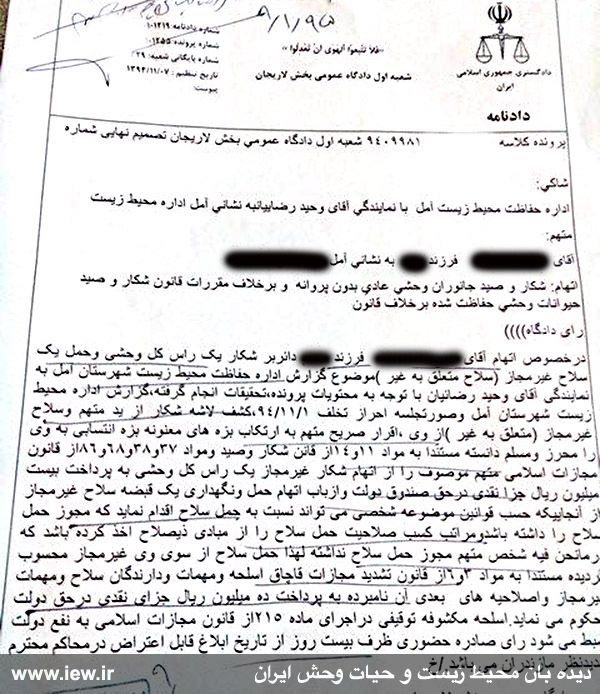 ۸/۱/۹۵
شماره دادنامه:
شماره پرونده:
شماره بایگانی شعبه:
تاریخ تنظیم: ۱۳۹۴/۱۱/۰۷
پیوست:
«فلا تتبعوا الهوی ان تعدلوا»
شعبه اول دادگاه عمومی بخش لاریجان
دادگستری جمهوری اسلامی
ایران
دادنامه
پرونده کلاسه ۹۴۰۹۹۸۱ شعبه اول دادگاه عمومی بخش لاریجان تصمیم نهایی شماره
شاکی:
اداره حفاظت محیط زیست آمل با نمایندگی آقای وحید رضاییانبه نشانی آمل اداره محیط زیست
متهم:
آقای فرزند به نشانی آمل
اتهام: شکار و صید جانوران وحشی عادی بدون پروانه و برخلاف مقررات قانون شکار و صید
حیوانات وحشی حفاظت شده برخلاف قانون
رای دادگاه))))
درخصوص اتهام آقای فرزند دائربر شکار یک راس کل وحشی وحمل یک
سلاح غیرمجاز (سلاح متعلق به غیر )موضوع گزارش اداره حفاظت محیط زیست شهرستان آمل به
نمایندگی آقای وحید رضائیان با توجه به محتویات پرونده،تحقیقات انجام گرفته،گزارش اداره محیط
زیست شهرستان آمل وصورتجلسه احراز تخلف ۹۴/۱۱/۱،کشف لاشه شکار از ید متهم وسلاح
غیرمجاز (متعلق به غیر )از وی ،اقرار صریح متهم به ارتکاب بزه های معنونه بزه انتسابی به وی
را محرز ومسلم دانسته مستندا به مواد ۱۱و۱۴از قانن شکار وصید ومواد ۳۷و۳۸و۶۸و۸۶از قانون
مجازات اسلامی متهم موصوف را از اتهام شکار غیرمجاز یک راس کل وحشی به پرداخت بیست
میلیون ریال جزا نقدی درحق صندوق دولت وازباب اتهام حمل ونگهداری یک قبضه سلاح غیرمجاز
از آنجاییکه حسب قوانین موضوعه شخصی می تواند نسبت به حمل سلاح اقدام نماید که مجوز حمل
سلاح را داشته باشدومراتب کسب صلاحیت حمل سلاح را از مبادی ذیصلاح اخذ کرده باشد که
درمانحن فیه شخص متهم مجوز حمل سلاح نداشته لهذا حمل سلاح از سوی وی غیرمجاز محسوب
گردیده مستندا به مواد ۳و۶از قانون تشدید مجازات قاچاق اسلحه ومهمات ودارندگان سلاح ومهمات
غیرمجاز واصلاحیه های بعدی آن نامبرده به پرداخت ده میلیون ریال جزای نقدی درحق دولت
محکوم می نماید.اسلحه مکشوفه توقیفی دراجرای ماده ۲۱۵از قانون مجازات اسلامی به نفع دولت
ضبط می شود رای صادره حضوری ظرف بیست روز از تاریخ ابلاغ قابل اعتراض درمحاکم محترم
تجدیدنظر مازندران می باشد/خ
دیده بان محیط زیست و حیات وحش ایران www.iew.ir